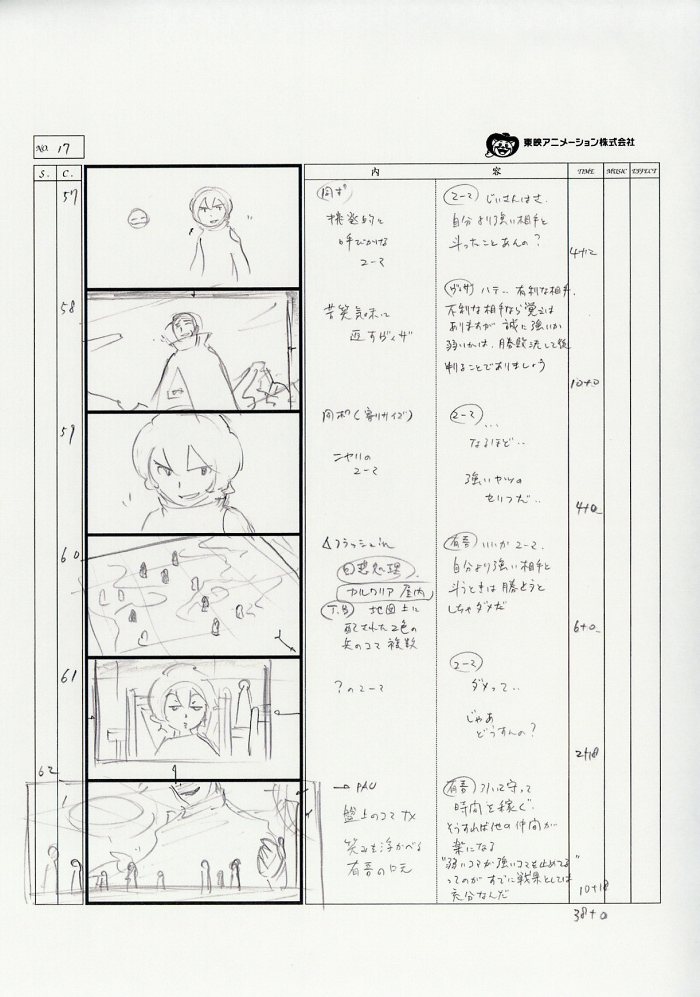 東映アニメーション株式会社
NO. 17
S. C. 内 容 TIME MUSIC EFFECT
57
同ポ
挑発的に
呼びかける
ユーマ
ユーマ じいさんはさ、
自分より強い相手と
斗ったことあんの?
4+12
58
苦笑気味に
返すヴィザ
ヴィザ ハテ… 有利な相手、
不利な相手なら覚えは
ありますが 誠に強いか
弱いかは、勝敗決して後
判ることでありましょう
10+0
59
同ポ(寄りサイズ)
ニヤリの
ユーマ
ユーマ …
なるほど‥
強いヤツの
セリフだ‥
4+0
60
フラッシュin
回想処理
カルワリア 屋内
T.B 地図上に
配された2色の
兵のコマ 複数
有吾 いいかユーマ、
自分より強い相手と
斗うときは勝とうと
しちゃダメだ
6+0
61
?のユーマ
ユーマ
ダメって‥
じゃあ
どうすんの?
2+18
62
→ PAU
盤上のコマナメ
笑みを浮かべる
有吾の口元
有吾 引いて守って
時間を稼ぐ、
そうすれば他の仲間が
楽になる
"弱いコマが強いコマを止めてる"
ってのが すでに戦果としては
充分なんだ
10+18
38+0